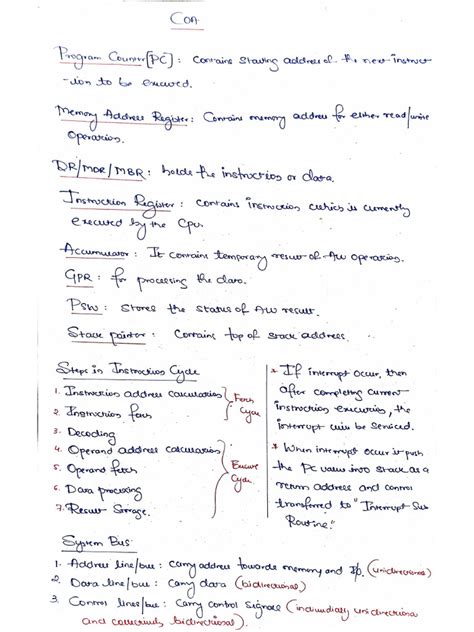 COA
Program Counter[PC] : Contains Starting address of the next instruct
-ion to be executed.
Memory Address Register : Contains memory address for either read/write
Operation.
DR/MDR/MBR : holds the instruction or data.
Instruction Register : contains instruction which is currently
executed by the Cpu.
Accumulator : It contains temporary result of ALU operation.
GPR : for processing the data.
PSW : stores the status of ALU result.
Stack pointer : Contains top of stack address.
Steps in Instruction Cycle
1. Instruction address calculation
2. Instruction fetch
Fetch
Cycle
3. Decoding
4. Operand address calculation
5. Operand fetch
6. Data processing
7. Result Storage.
Execute
Cycle
* If interrupt occur, then
after completing current
instruction execution, the
interrupt will be serviced.
* When interrupt occur it push
the PC value into stack as a
return address and control
transferred to "Interrupt Sub
Routine."
System Bus :
1. Address line/bus : carry address towards memory and I/O. (unidirectional)
2. Data line/bus : carry data (bidirectional)
3. Control lines/bus : carry control signals (individually unidirectional
and collectively bidirectional).